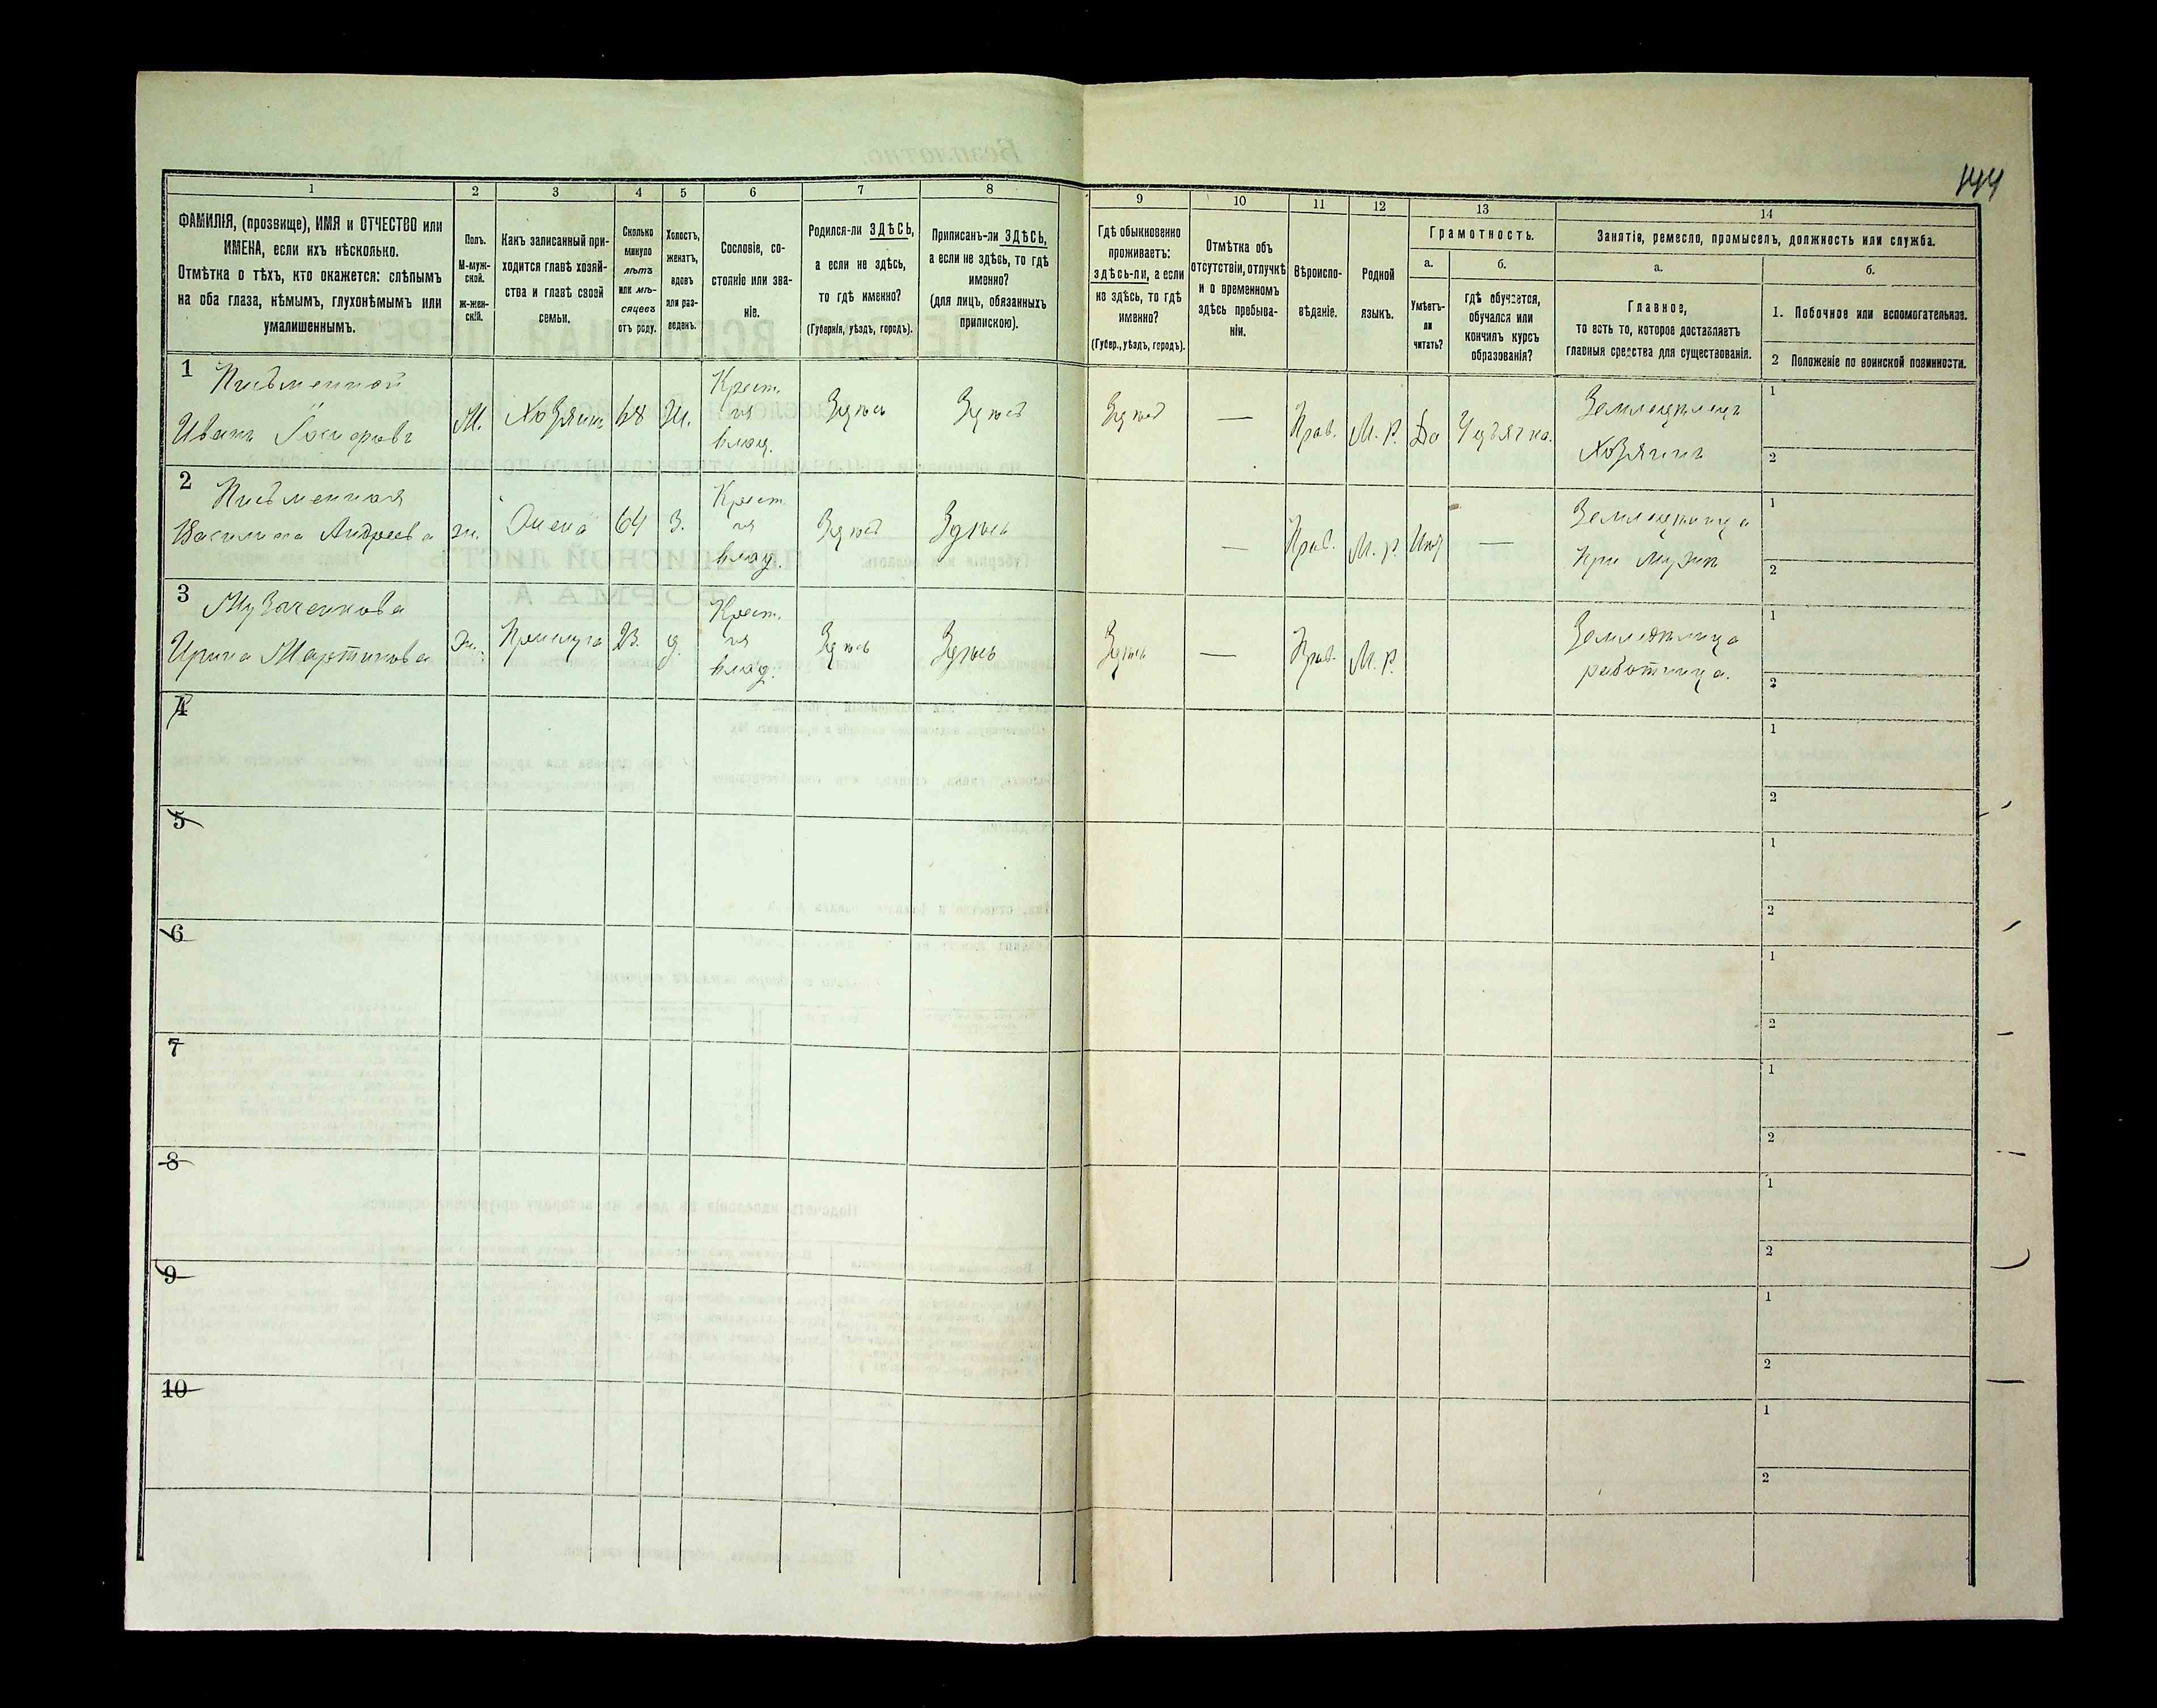 144
1 2 3 4 5 6 7 8 9 10 11 12 13 14
ФАМИЛІЯ, (прозвище), ИМЯ и ОТЧЕСТВО или
ИМЕНА, если ихъ нѣсколько.
Отмѣтка о тѣхъ, кто окажется: слѣпымъ
на оба глаза, нѣмымъ, глухонѣмымъ или
умалишеннымъ.
Полъ.
М-муж-
ской.
ж-жен-
скій.
Какъ записанный при-
ходится главѣ хозяй-
ства и главѣ своей
семьи.
Сколько
минуло
лѣтъ
или мѣ-
сяцевъ
отъ роду.
Холостъ,
женатъ,
вдовъ
или раз-
веденъ.
Сословіе, со-
стояніе или зва-
ніе.
Родился-ли ЗДѢСЬ,
а если не здѣсь,
то гдѣ именно?
(Губернія, уѣздъ, городъ).
Приписанъ-ли ЗДѢСЬ,
а если не здѣсь, то гдѣ
именно?
(для лицъ, обязанныхъ
припискою).
Гдѣ обыкновенно
проживаетъ:
здѣсь-ли, а если
не здѣсь, то гдѣ
именно?
(Губер., уѣздъ, городъ).
Отмѣтка объ
отсутствіи, отлучкѣ
и о временномъ
здѣсь пребыва-
ніи.
Вѣроиспо-
вѣданіе.
Родной
языкъ.
Грамотность.
а.
Умѣетъ-
ли
читать?
б.
гдѣ обучается,
обучался или
кончилъ курсъ
образованія?
Занятіе, ремесло, промыселъ, должность или служба.
а.
Главное,
то есть то, которое доставляетъ
главныя средства для существованія.
б.
1. Побочное или вспомогательное.
2 Положеніе по воинской повинности.
1 Письменной
Иванъ
М. Хозяинъ 68 Ж.
Крест.
изъ
влад.
Здѣсь Здѣсь Здѣсь — Прав. М. Р. Да
Земледѣлецъ
Хозяинъ
1
2
2 Письменная
Василиса Андреева
Ж. 64 З.
Крест.
изъ
влад.
Здѣсь Здѣсь — Прав. М. Р. —
При мужѣ
1
2
3
Ирина Мартинова
Ж. Прислуга 23. д.
Крест.
изъ
влад.
Здѣсь Здѣсь Здѣсь — Прав. М. Р.
Земледѣлица
работница.
1
2
4
1
2
5
1
2
6
1
2
7
1
2
8
1
2
9
1
2
10
1
2